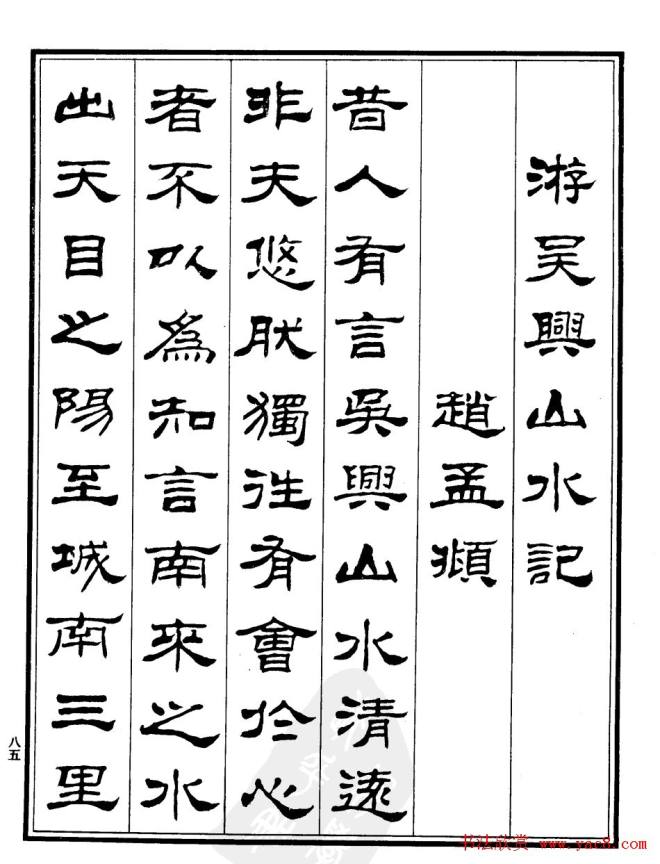 游吴興山水記
趙孟頫
昔人有言吳興山水清遠
非夫悠肰獨往有會於心
者不以爲知言南來之水
出天目之陽至城南三里
八五
书法欣赏 www.yac8.com